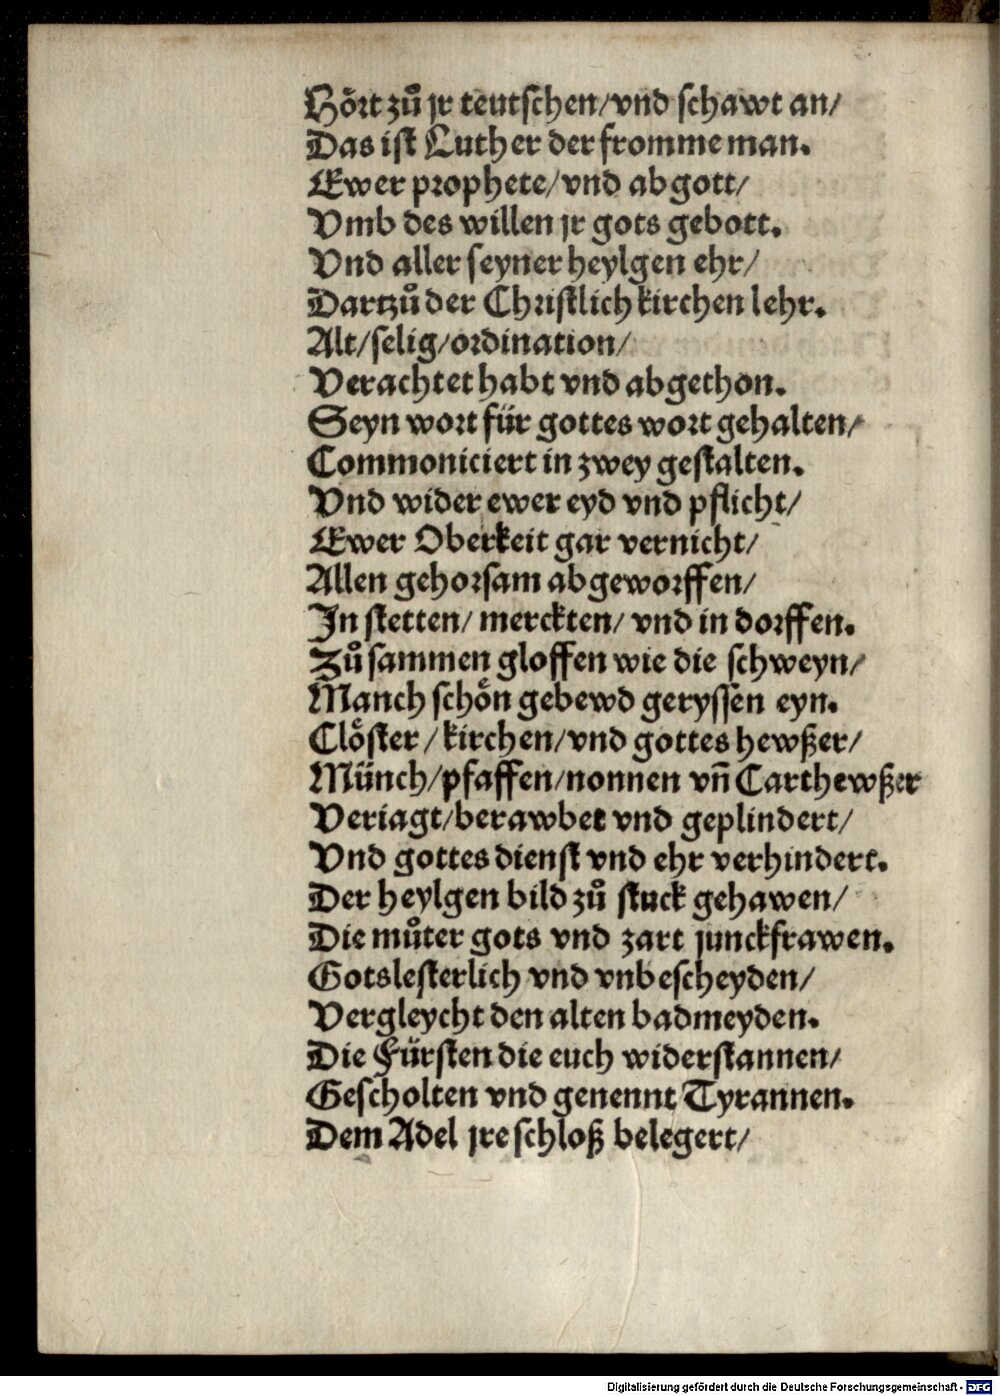 Hoͤrt zuͦ jr teutschen/vnd schawt an/
Das ist Luther der fromme man.
Ewer prophete/vnd abgott/
Vmb des willen jr gots gebott.
Vnd aller seyner heylgen ehr/
Dartzuͦ der Christlich kirchen lehr.
Alt/selig/ordination/
Verachtet habt vnd abgethon.
Seyn wort für gottes wort gehalten/
Commoniciert in zwey gestalten.
Vnd wider ewer eyd vnd pflicht/
Ewer Oberkeit gar vernicht/
Allen gehorsam abgeworffen/
In stetten/ merckten/ vnd in dorffen.
Zuͦ sammen gloffen wie die schweyn/
Manch schoͤn gebewd geryssen eyn.
Cloͤster/kirchen/vnd gottes hewßer/
Münch/pfaffen/nonnen vñ Carthewßer
Veriagt/berawbet vnd geplindert/
Vnd gottes dienst vnd ehr verhindert.
Der heylgen bild zuͦ stuck gehawen/
Die muͦter gots vnd zart junckfrawen.
Gotslesterlich vnd vnbescheyden/
Vergleycht den alten badmeyden.
Die Fürsten die euch widerstannen/
Gescholten vnd genennt Tyrannen.
Dem Adel jre schloß belegert/
Digitalisierung gefördert durch die Deutsche Forschungsgemeinschaft - DFG